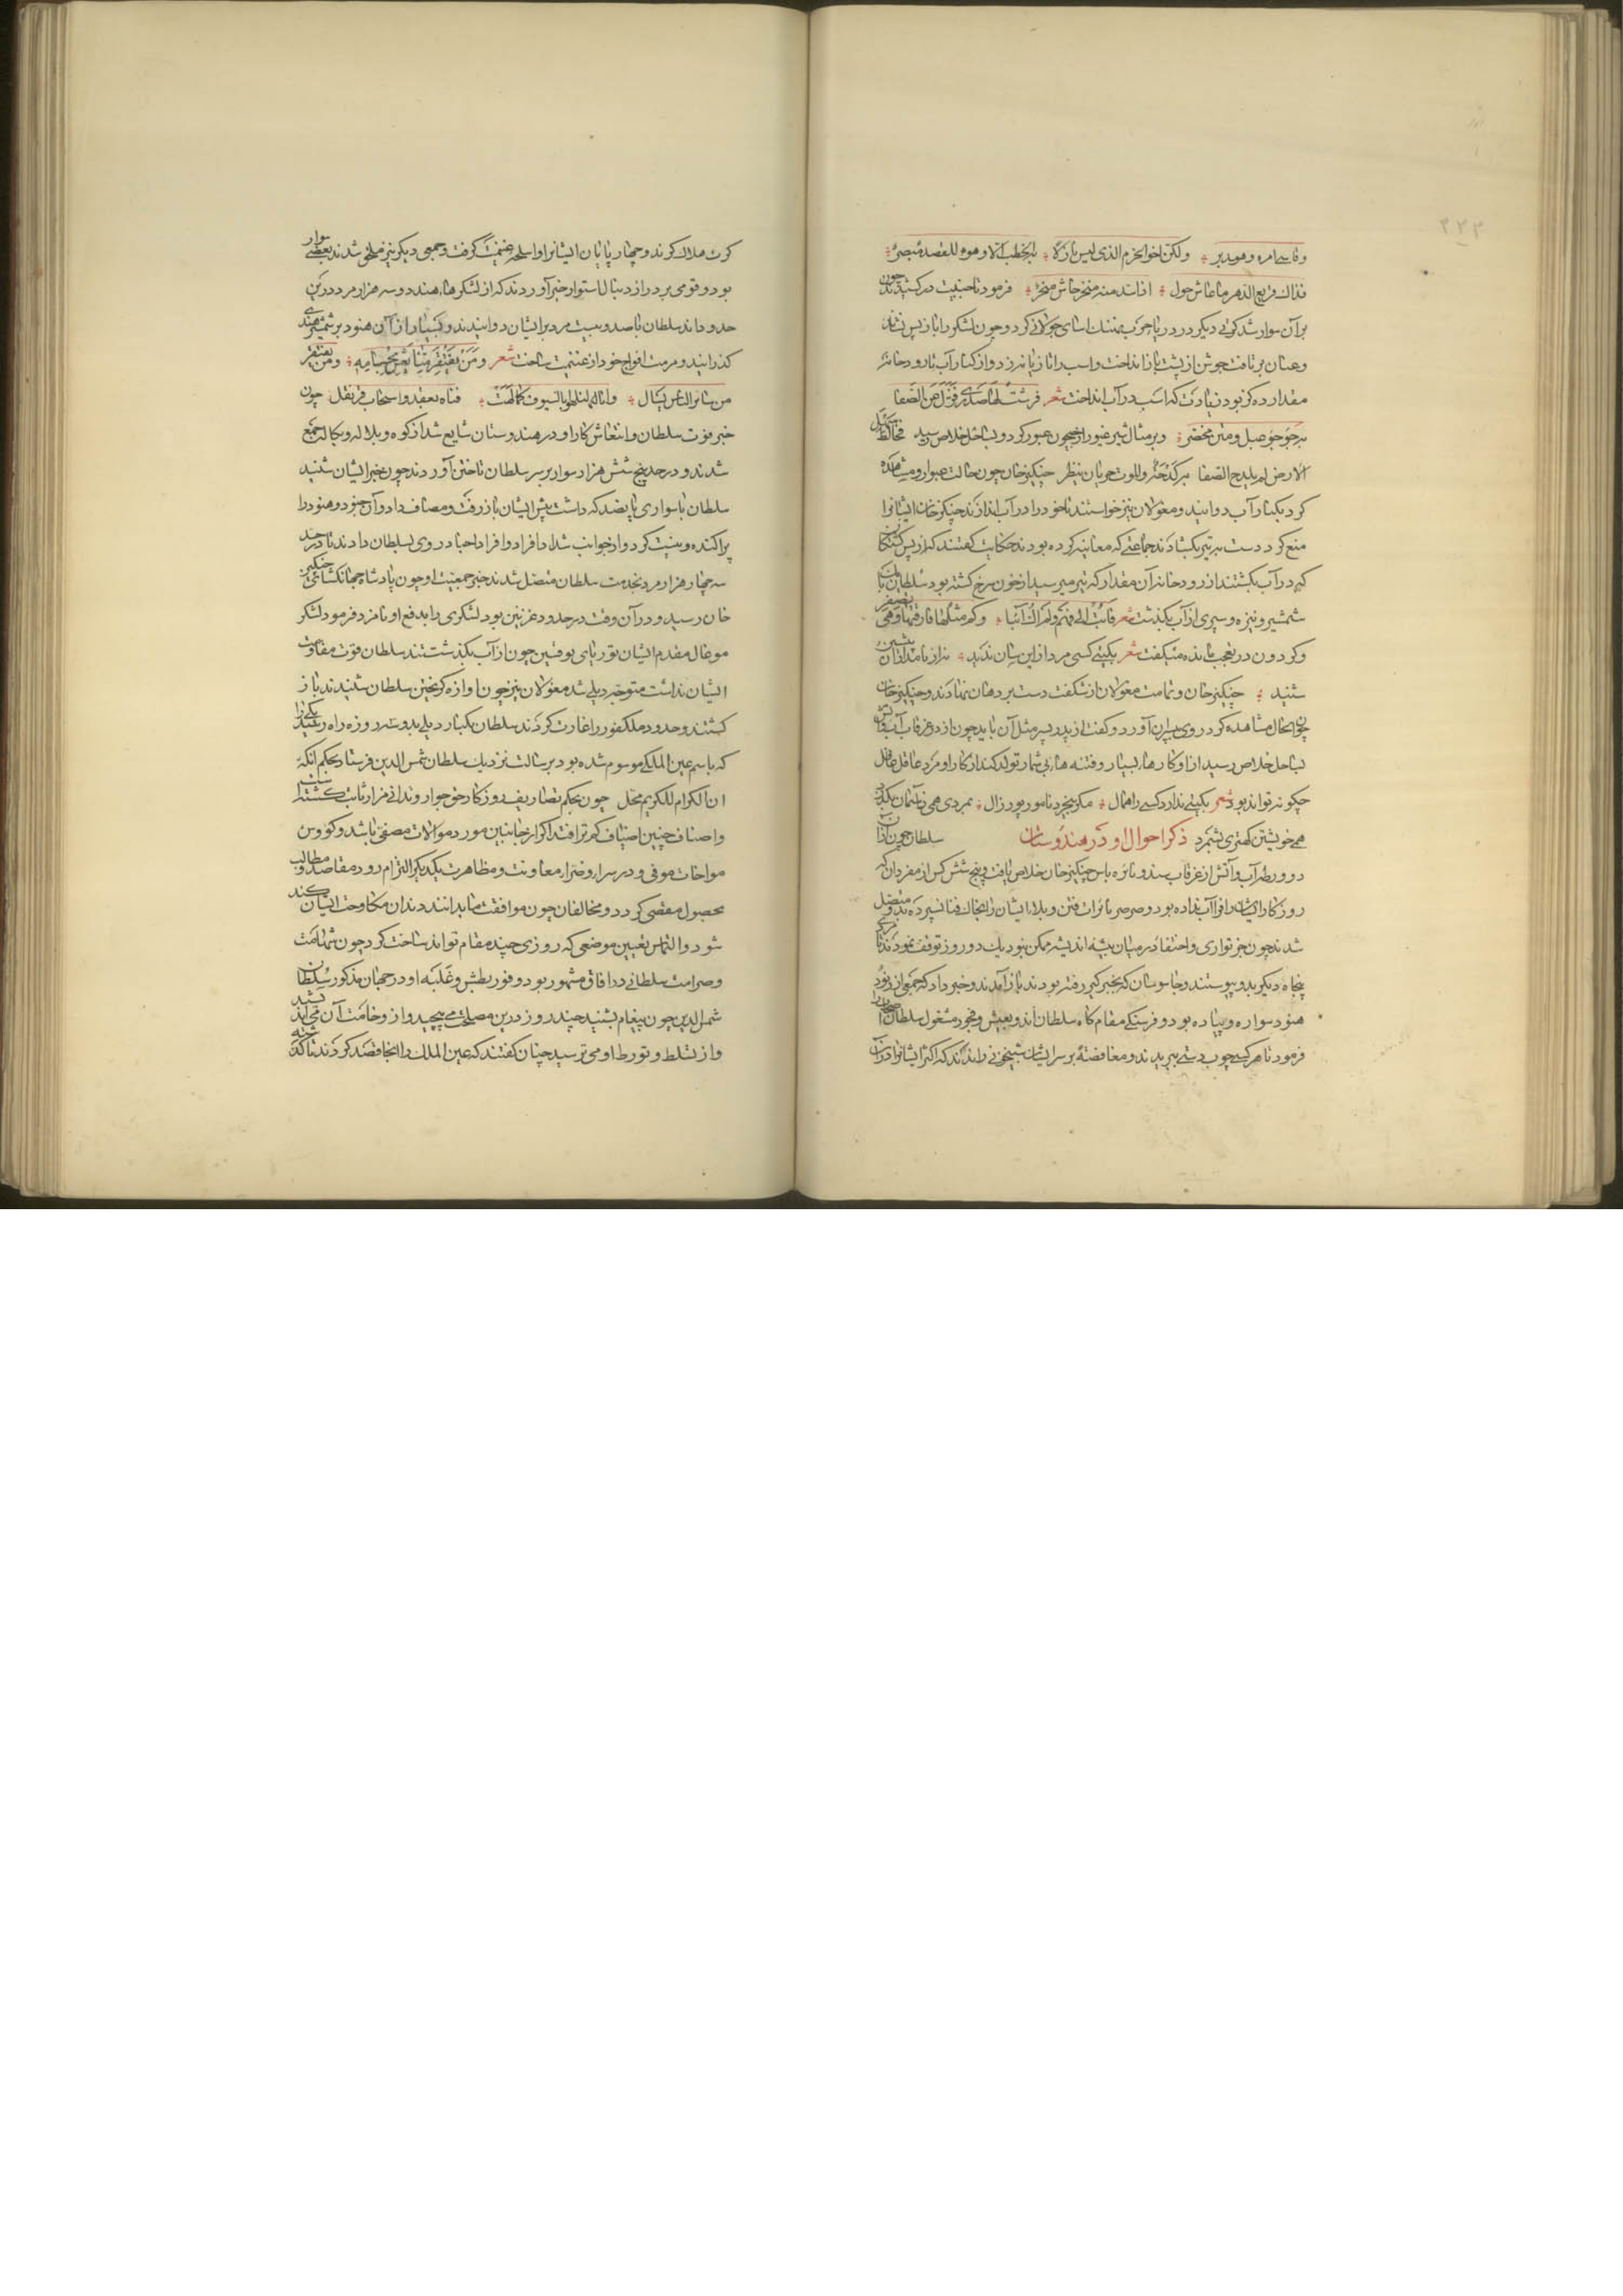 وقاسی امره وهو مدبر ولکن اخو الحزم الذی لیس نازلا به الخطب الا وهو للقصد مبصر
فذاک قریع الدهر ما عاش حول اذا سد منه منخر جاش منخر فرمود تا جنیبت درکشیدند چون
بر آن سوار شد کرتی دیکر در دریا حرب نهنک اسای جولانی کرد و چون لشکر را باز پس نشاند
وعنان بر تافت جوشن از پشت باز انداخت واسب را تازیانه زد واز کنار آب تا رودخانه
مقدار ده کز بود زیادت که اسب در آب انداخت شعر فرشت لها صدری فزل عن الصفا
به جؤجؤ عبل ومتن مخصر وبر مثال شیر غیور از جیحون عبور کرد وبساحل خلاص رسید فخالط سهل
الارض لم یکدح الصفا به کدحة والموت خزیان ینظر چنکیز خان چون حالت عبور او مشاهده
کرد بکنار آب دوانید ومغولان نیز خواستند تا خود را در آب اندازند چنکیز خان ایشانرا
منع کرد دست به تیر بکشادند جماعتی که معاینه کرده بودند حکایت کفتند که از پس کسان
که در آب بکشتند از رودخانه آن مقدار که تیر میرسید از خون سرخ کشته بود سلطان با یک
شمشیر ونیزه وسپری از آب بکذشت شعر فابت الی فهم ولم اک آئبا وکم مثلها فارقتها وهی تصفر
وکردون در تعجب مانده میکفت شعر بکیتی کسی مرد ازین سان ندید نه از نامداران پیشین
شنید چنکیز خان وتمامت مغولان از شکفت دست بر دهان نهادند وچنکیز خان
چون آنحال مشاهده کرد روی به پسران آورد وکفت از پدر پسر مثل آن باید چون از دو غرقاب آب وآتش
بساحل خلاص رسید ازو کارهاء بسیار وفتنه هاء بی شمار تولد کند از کار او مرد عاقل غافل
چکونه تواند بود شعر بکیتی ندارد کسی را همال مکر بیخرد نامور پور زال بمردی همی ز آسمان بکذرد
همی خویشتن کهتری نشمرد ذکر احوال او در هندوستان سلطان چون از آن
دو ورطه آب وآتش از غرقاب سند ونائره باس چنکیز خان خلاص یافت و پنج شش کس از مفردان که
روزکار ایشان را فرا آب نداده بود وصرصر نائرات فتن وبلا ایشان را بخاک فنا نسپرده بدو متصل
شدند چون جز تواری واختفا در میان بیشه اندیشه ممکن نبود یک دو روز توقف نمودند تا مردی
پنجاه دیکر بدو پیوستند وجاسوسان که بخبر کیری رفته بودند باز آمدند وخبر داد که جمعی از رنود
هنود سواره وپیاده بود و فرسنکی مقام کاه سلطان اند وبعیش وفجور مشغول سلطان اصحاب را
فرمود تا هر کسی چوب دستی ببریدند ومغافصة بر سر ایشان شبیخونی راندند که اکثر ایشانرا در آن
کرت هلاک کردند وچهارپایان ایشانرا واسلحه غنیمت کرفت وجمعی دیکر نیز ملحق شدند بعضی سوار
بود وقومی بر دراز دنبال استوار خبر آوردند که از لشکرهاء هند دو سه هزار مرد درین
حدود اند سلطان با صد وبیست مرد بر ایشان دوانیدند وبسیار از آن هنود بر شمشیر هندی
کذرانید ومرمت افواج خود از غنیمت ساخت شعر ومن یفتقر منا یعش بحسامه ومن یفتقر
من سائر الناس یسال وانا لنلهو بالسیوف کما لهت فتاة بعقد او سخاب قرنفل چون
خبر قوت سلطان وانتعاش کار او در هندوستان شایع شد از کوه وبلاله ورکاله جمع
شدند ودر حد پنج شش هزار سوار بر سر سلطان تاختن آوردند چون خبر ایشان شنید
سلطان با سواری پانصد که داشت پیش ایشان باز رفت ومصاف داد وآن جنود وهنود را
پراکنده ونیست کرد واز جوانب شداد افراد وافراد احباد روی بسلطان دادند تا در حد
سه چهار هزار مرد بخدمت سلطان متصل شدند خبر جمعیت او چون پادشاه جهانکشای چنکیز
خان رسید ودر آن وقت در حدود غزنین بود لشکری را بدفع او نامزد فرمود لشکر
موغال مقدم ایشان توربای یوقشین چون از آب بکذشتند سلطان قوت مقاومت
ایشان نداشت متوجه دیلی شد مغولان نیز چون آوازه کریختن سلطان شنیدند باز
کشتند وحدود ملکفور را غارت کردند سلطان بکنار دیلی بدو سه روزه راه رسید یکی را
که باسم عین الملکی موسوم شده بود برسالت نزدیک سلطان شمس الدین فرستاد بحکم آنکه
ان الکرام للکریم محل چون بحکم تصاریف روزکار حق جوار وتدانی مزار ثابت کشته است
واصناف چنین اضیاف کم تر افتد اکر از جانبین مورد موالات مصفی باشد وکؤوس
مواخات موفی ودر سرا وضرا معاونت ومظاهرت یکدیکر التزام رود مقاصد ومطالب
بحصول مقضی کردد ومخالفان چون موافقت ما بدانند دندان مکاوحت ایشان کند
شود والتماس تعیین موضعی که روزی چند مقام تواند ساخت کرد چون شهامت
وصرامت سلطانی در آفاق مشهور بود ووفور بطش وغلبه او در جهان مذکور سلطان
شمس الدین چون پیغام بشنید چند روز درین مصلحت می پیچید واز وخامت آن می اندیشید
واز تسلط وتورط او می ترسید چنان کفتند که عین الملک را آنجا قصد کردند تا کشته